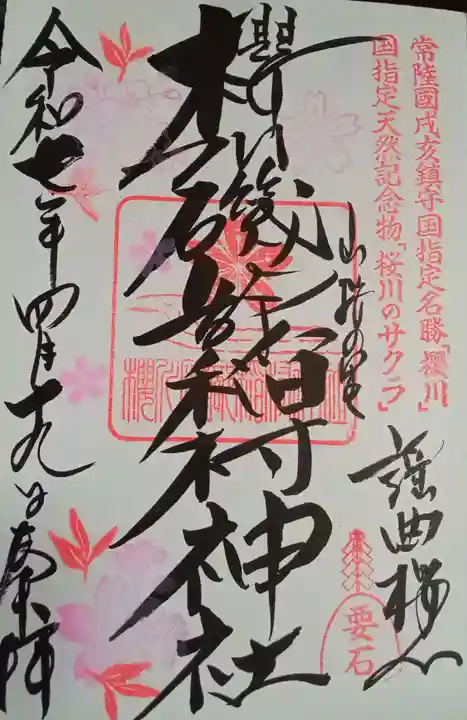 常陸國戌亥鎮守国指定名勝「櫻川」
国指定天然記念物「桜川のサクラ」
謡曲櫻川
要石
山桜の里
櫻川磯部稲村神社
令和七年四月十九日奉拝